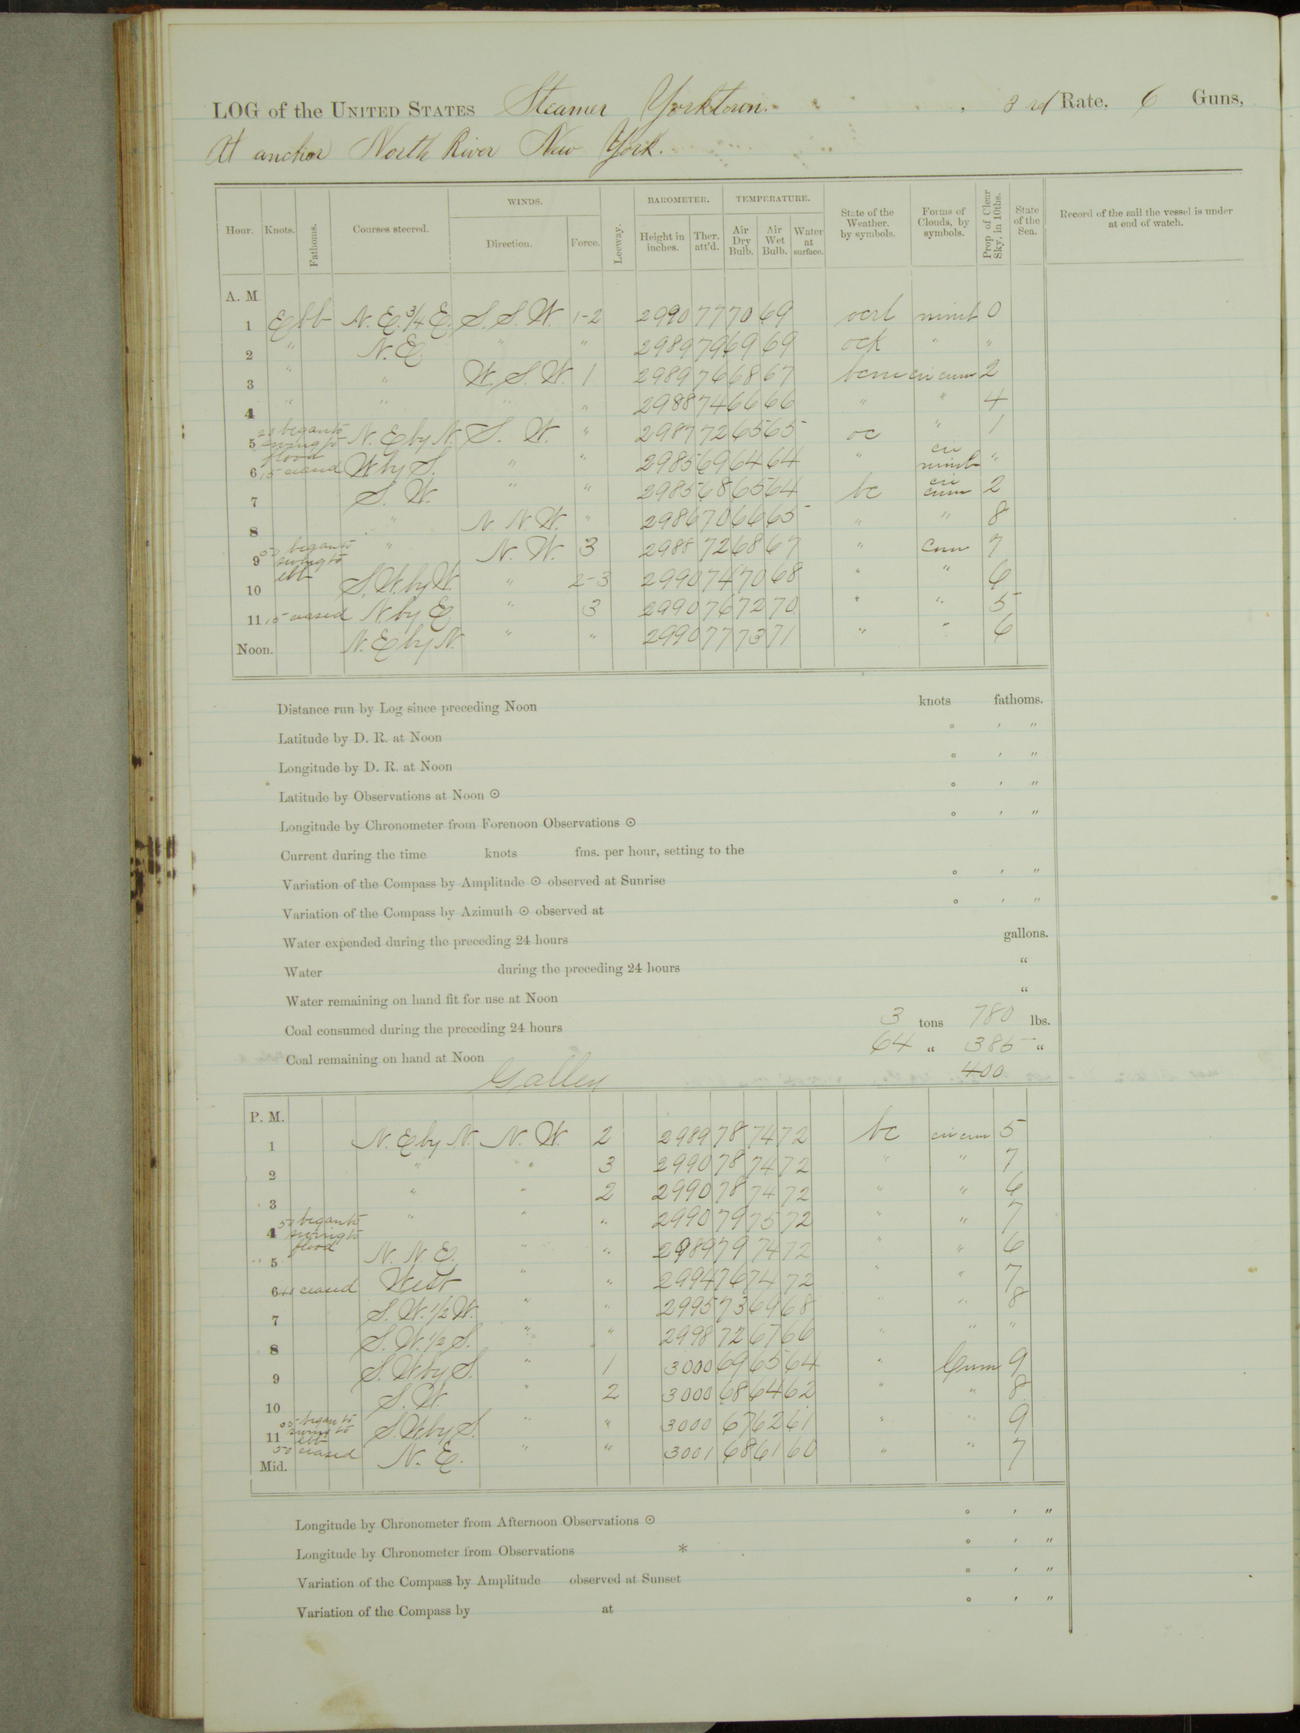 LOG of the UNITED STATES Steamer Yorktown. 3rd Rate, 6 Guns,
At anchor North River New York.
Hour. Knots. Fathoms. Courses steered. WINDS. Direction. Force. Leeway. BAROMETER. Height in inches. Ther. att'd. TEMPERATURE. Air Dry Bulb. Air Wet Bulb. Water at surface. State of the Weather. by symbols. Forms of Clouds, by symbols. Prop of Clear Sky, in 10ths. State of the Sea. Record of the sail the vessel is under at end of watch.
A. M.
1 Ebb N. E. 3/4 E. S. S. W. 1-2 2990 77 70 69 nimb 0
2 " N. E. " " 2989 79 69 69 " "
3 " " W. S. W. 1 2989 76 68 67 bcm cir cum 2
4 " " " " 2988 74 66 66 " " 4
20 began to swing to flood
5 N. E by N. S. W. " 2987 72 65 65 oc " 1
6 15 ceased W by S. " " 2985 69 64 64 " cir nimb "
7 S. W. " " 2985 68 65 64 bc cir cum 2
8 " N. N. W. " 2986 70 66 65 " " 8
50 began to swing to ebb
9 " N. W. 3 2988 72 68 67 " Cum 7
10 S. W. by W. " 2-3 2990 74 70 68 " " 6
11 15 ceased N by E " 3 2990 76 72 70 " " 5
Noon. N. E by N. " " 2990 77 73 71 " " 6
Distance run by Log since preceding Noon knots fathoms.
Latitude by D. R. at Noon ° ' "
Longitude by D. R. at Noon ° ' "
Latitude by Observations at Noon ☉ ° ' "
Longitude by Chronometer from Forenoon Observations ☉ ° ' "
Current during the time knots fms. per hour, setting to the
Variation of the Compass by Amplitude ☉ observed at Sunrise ° ' "
Variation of the Compass by Azimuth ☉ observed at ° ' "
Water expended during the preceding 24 hours gallons.
Water during the preceding 24 hours "
Water remaining on hand fit for use at Noon "
Coal consumed during the preceding 24 hours 3 tons 780 lbs.
Coal remaining on hand at Noon 64 " 385 "
Galley 400
P. M.
1 N. E by N. N. W. 2 2989 78 74 72 bc cir cum 5
2 " " 3 2990 78 74 72 " " 7
3 " " 2 2990 78 74 72 " " 6
4 50 began to swing to flood " " " 2990 79 75 72 " " 7
5 N. N. E. " " 2989 79 74 72 " " 6
6 40 ceased West " " 2994 76 74 72 " " 7
7 S. W. 1/2 W. " " 2995 73 69 68 " " 8
8 S. W. 1/2 S. " " 2998 72 67 66 " " "
9 S. W by S. " 1 3000 69 65 64 " Cum 9
10 S. W. " 2 3000 68 64 62 " " 8
05 began to swing to ebb
11 S. W by S. " " 3000 67 62 61 " " 9
50 ceased
Mid. N. E. " " 3001 68 61 60 " " 7
Longitude by Chronometer from Afternoon Observations ☉ ° ' "
Longitude by Chronometer from Observations * ° ' "
Variation of the Compass by Amplitude observed at Sunset ° ' "
Variation of the Compass by at ° ' "